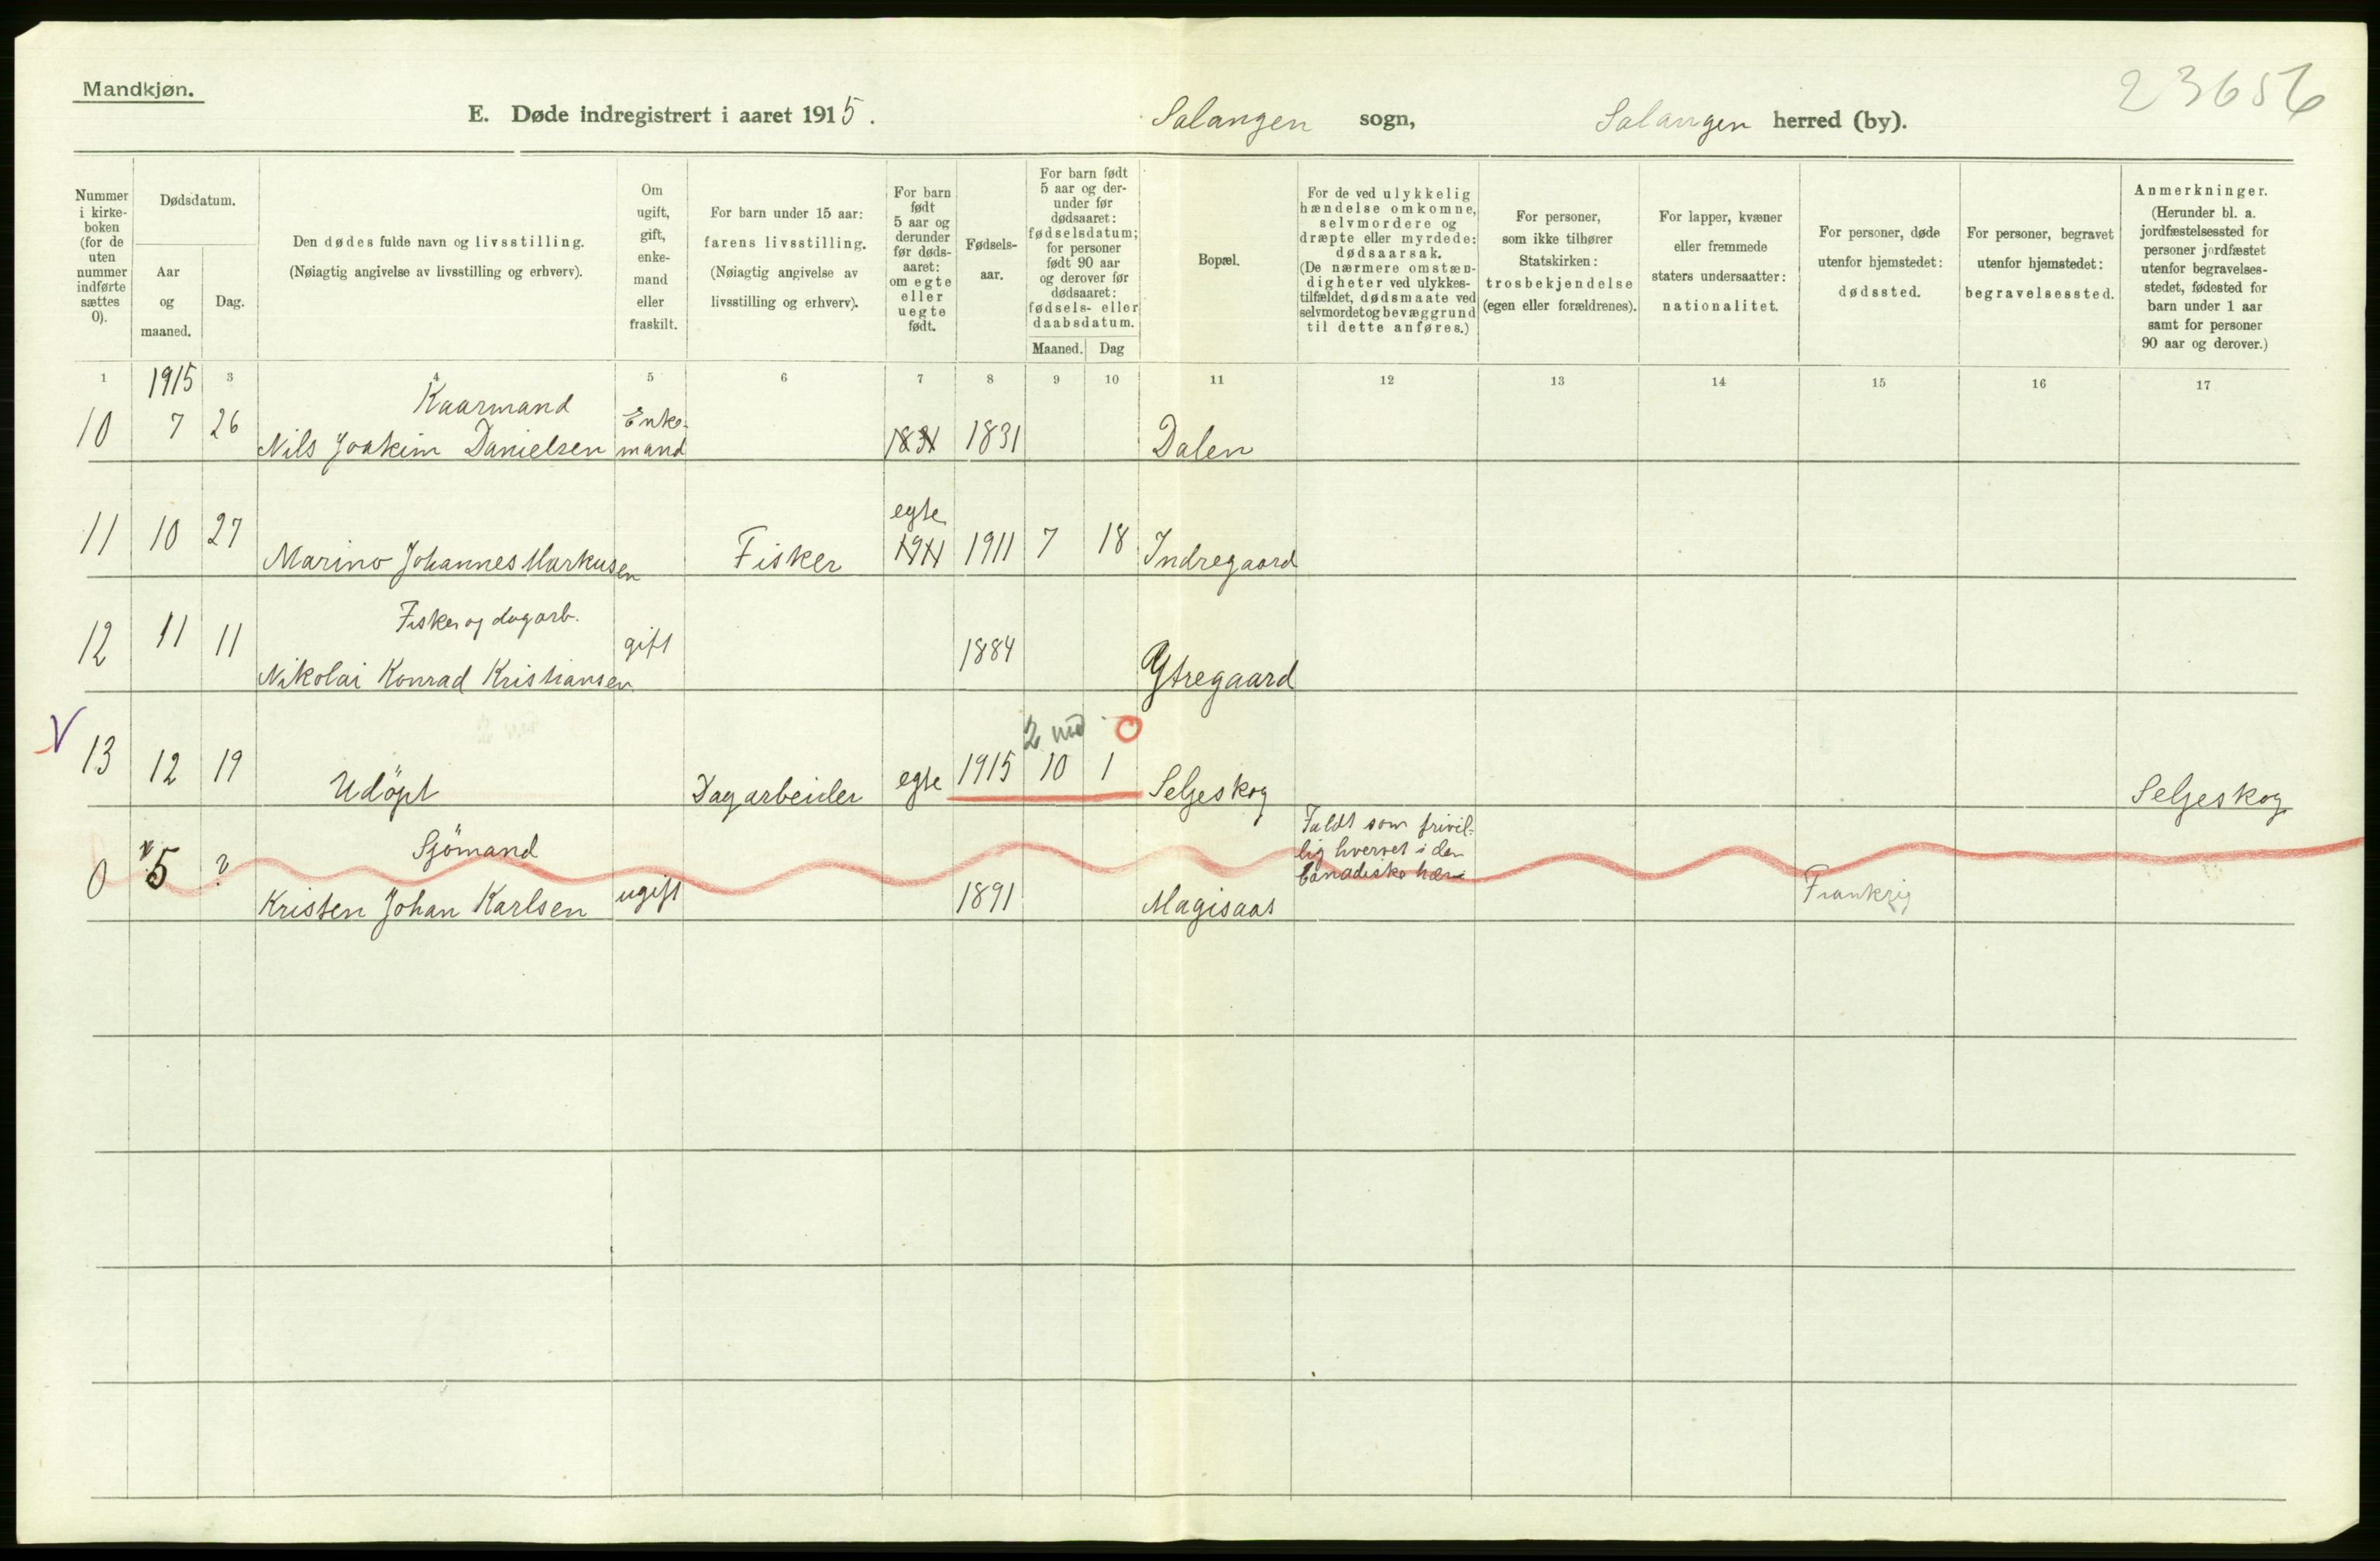 Mandkjøn.
23656
E. Døde indregistrert i aaret 1915. Salangen sogn, Salangen herred (by).
Nummer i kirke- boken (for de uten nummer indførte sættes 0).
Dødsdatum.
Aar og maaned.
Dag.
Den dødes fulde navn og livsstilling.
(Nøiagtig angivelse av livsstilling og erhverv).
Om ugift, gift, enke- mand eller fraskilt.
For barn under 15 aar: farens livsstilling. (Nøiagtig angivelse av livsstilling og erhverv).
For barn født 5 aar og derunder før døds- aaret: om egte eller uegte født.
Fødsels- aar.
For barn født 5 aar og der- under før dødsaaret: fødselsdatum; for personer født 90 aar og derover før dødsaaret: fødsels- eller daabsdatum.
Maaned. Dag
Bopæl.
For de ved ulykkelig hændelse omkomne, selvmordere og dræpte eller myrdede: dødsaarsak. (De nærmere omstæn- digheter ved ulykkes- tilfældet, dødsmaate ved selvmordet og bevæggrund til dette anføres.)
For personer, som ikke tilhører Statskirken: trosbekjendelse (egen eller forældrenes).
For lapper, kvæner eller fremmede staters undersaatter: nationalitet.
For personer, døde utenfor hjemstedet: dødssted.
For personer, begravet utenfor hjemstedet: begravelsessted.
Anmerkninger. (Herunder bl. a. jordfæstelsessted for personer jordfæstet utenfor begravelses- stedet, fødested for barn under 1 aar samt for personer 90 aar og derover.)
1 1915 3 4 5 6 7 8 9 10 11 12 13 14 15 16 17
Kaarmand
10 7 26 Nils Joakim Danielsen Enke- mand 1831 1831 Dalen
egte
11 10 27 Marino Johannes Markusen Fisker 1911 1911 7 18 Indregaard
Fisker og dagarb.
12 11 11 Nikolai Konrad Kristiansen gift 1884 Ytregaard
V 2 md 0
13 12 19 Udöpt Dagarbeider egte 1915 10 1 Seljeskog Seljeskog
Sjömand
0 5 ? Kristen Johan Karlsen ugift 1891 Magisaas
Faldt som frivil-
lig hvervet i den
Canadiske hær
Frankrig